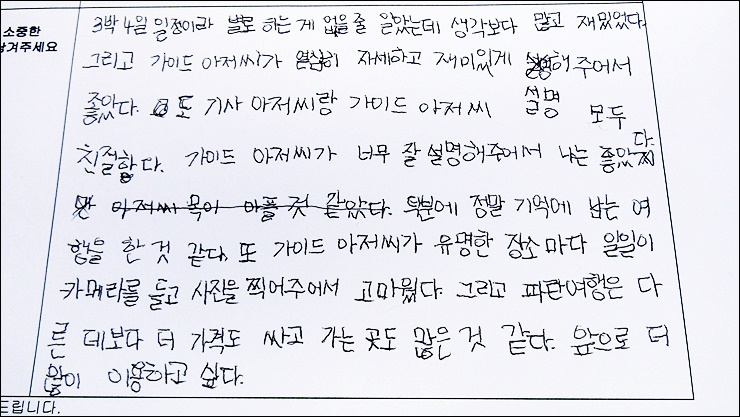 소중한
남겨주세요
3박 4일 일정이라 별로 하는 게 없을 줄 알았는데 생각보다 많고 재밌었다.
그리고 가이드 아저씨가 열심히 자세하고 재미있게 설명해 주어서
좋았다. 또 기사 아저씨랑 가이드 아저씨 모두
친절하다. 가이드 아저씨가 너무 잘 설명해주어서 나는 좋았다.
아저씨 목이 아플 것 같았다. 덕분에 정말 기억에 남는 여
행을 한 것 같다. 또 가이드 아저씨가 유명한 장소마다 일일이
카메라를 들고 사진을 찍어주어서 고마웠다. 그리고 파란여행은 다
른 데보다 더 가격도 싸고 가는 곳도 많은 것 같다. 앞으로 더
많이 이용하고 싶다.
드립니다.